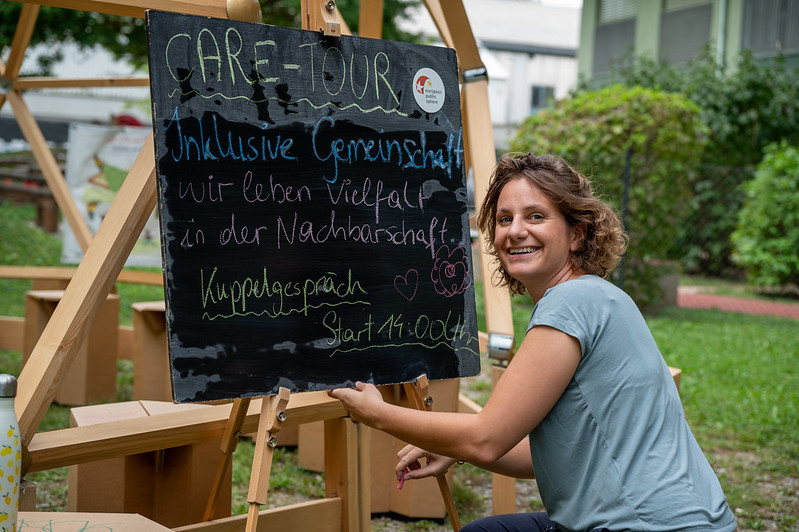 CARE-TOUR
european
public
sphere
Inklusive Gemeinschaft
wir leben Vielfalt
in der Nachbarschaft
Kuppelgespräch
Start 14:00 Uhr